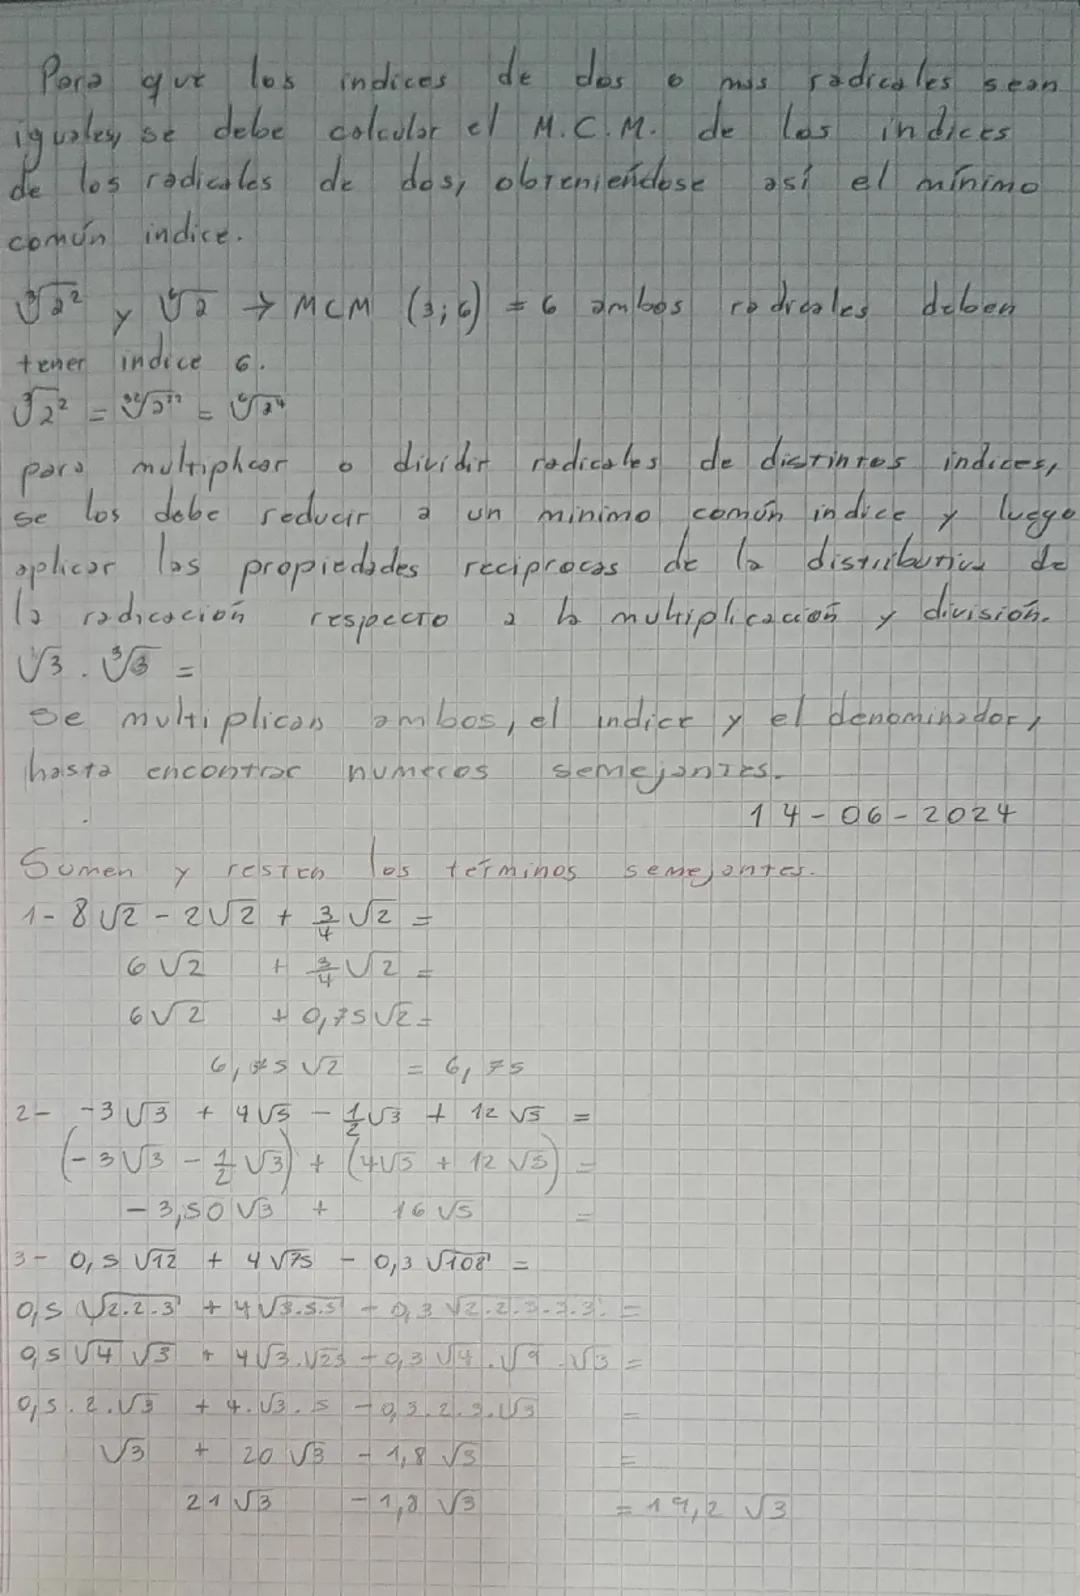 Para que los indices de dos o mas radicales sean
iguales, se debe calcular el M.C.M. de los indices
de los radicales de dos, obteniéndose así el mínimo
común indice.
∛2² y ⁶√2 → MCM (3;6) = 6 ambos radicales deben
tener indice 6.
∛2² = ³·²√2²·² = ⁶√2⁴
para multiplicar o dividir radicales de distintos indices,
se los debe reducir a un minimo común indice y luego
aplicar las propiedades reciprocas de la distributiva de
la radicación respecto a la multiplicación y división.
√3 . ∛3 =
Se multiplican ambos, el indice y el denominador,
hasta encontrar numeros semejantes.
14-06-2024
Sumen y resten los términos semejantes.
1- 8√2 - 2√2 + 3/4 √2 =
6√2 + 3/4 √2 =
6√2 + 0,75√2 =
6,75 √2 = 6,75
2- -3√3 + 4√5 - 1/2 √3 + 12√5 =
(-3√3 - 1/2 √3) + (4√5 + 12√5) =
-3,50√3 + 16√5 =
3- 0,5√12 + 4√75 - 0,3√108 =
0,5√2.2.3 + 4√3.5.5 - 0,3√2.2.3.3.3. =
0,5√4 √3 + 4√3.√25 - 0,3√4.√9.√3 =
0,5.2.√3 + 4.√3.5 - 0,3.2.3.√3 =
√3 + 20√3 - 1,8√3 =
21√3 - 1,8√3 = 19,2√3